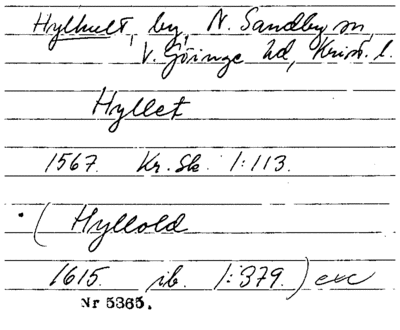 Hylhult, by, N. Sandby sn,
V. Göinge hd, Krist. l.
Hyllet
1567. Kr. Sk. 1:113.
(Hyllold
1615. ib. 1:379.) exc
Nr 5365.